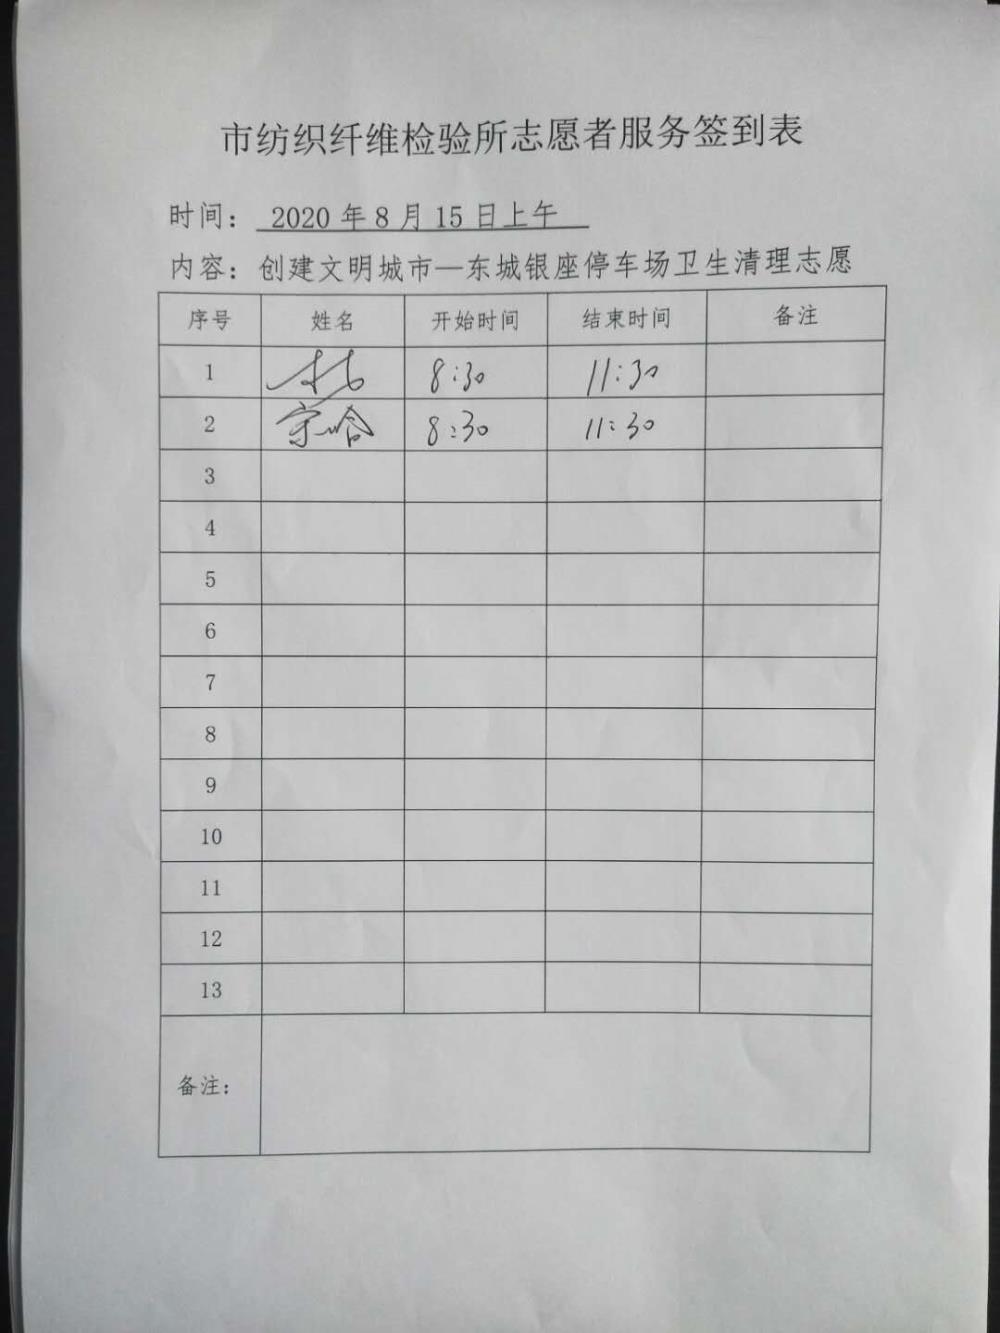 市纺织纤维检验所志愿者服务签到表
时间： 2020 年 8 月 15 日上午
内容：创建文明城市—东城银座停车场卫生清理志愿
序号 姓名 开始时间 结束时间 备注
1 8:30 11:30
2 8:30 11:30
3
4
5
6
7
8
9
10
11
12
13
备注：